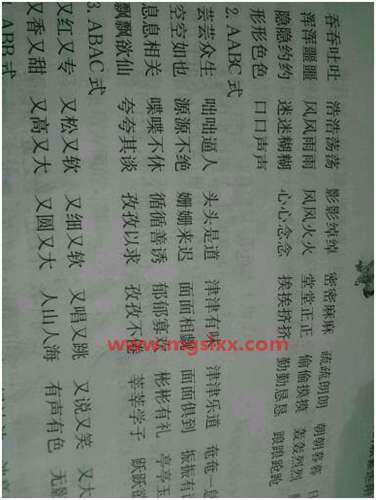 吞吞吐吐 浩浩荡荡 影影绰绰 密密麻麻 疏疏朗朗 朝朝暮暮
浑浑噩噩 风风雨雨 风风火火 堂堂正正 偷偷摸摸 轰轰烈烈
隐隐约约 迷迷糊糊 心心念念 挨挨挤挤 勤勤恳恳 踉踉跄跄
形形色色 口口声声
2. AABC 式
芸芸众生 咄咄逼人 头头是道 津津有味 津津乐道 奄奄一
空空如也 源源不绝 姗姗来迟 面面相觑 面面俱到 振振有
息息相关 喋喋不休 循循善诱 郁郁寡 彬彬有礼 亭亭玉
飘飘欲仙 夸夸其谈 孜孜以求 孜孜不 莘莘学子 跃跃
3. ABAC 式
又红又专 又松又软 又细又软 又唱又跳 又说又笑 又大
又香又甜 又高又大 又圆又大 人山人海 有声有色 无
ABB 式
www.mgslxx.com